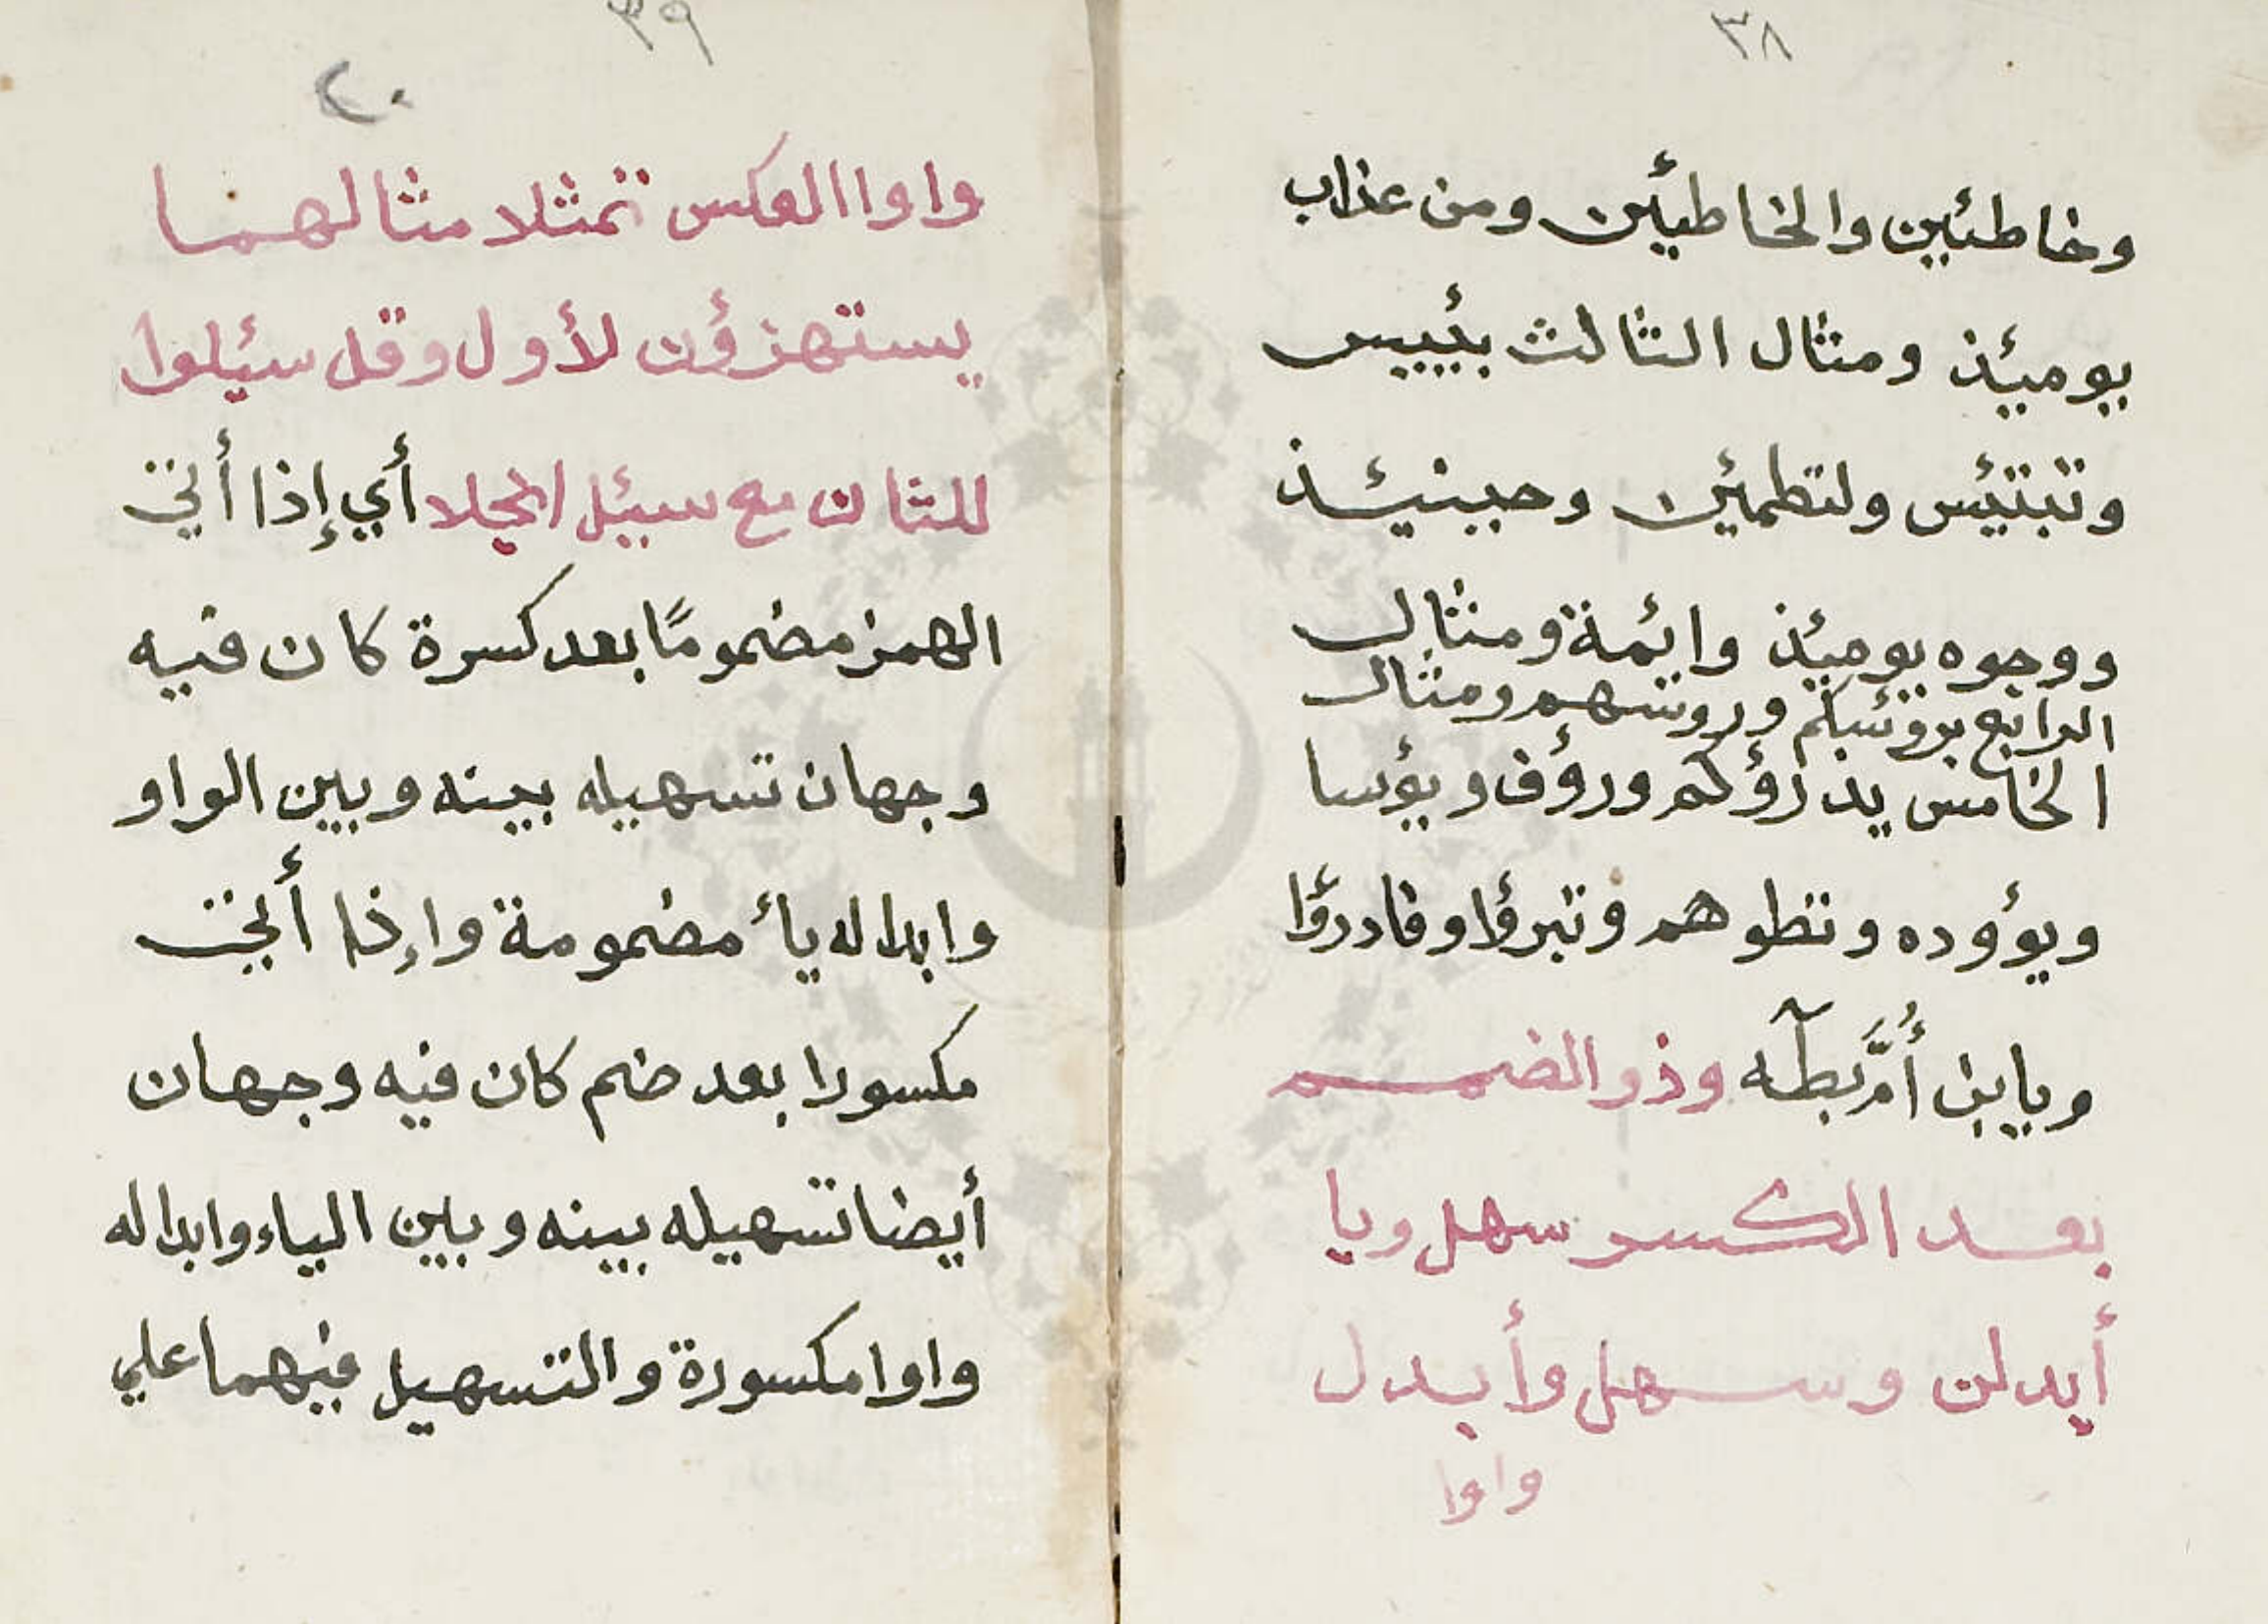 ٣٨
وخاطئين والخاطئين ومن عذاب
يومئذ ومثال الثالث بئيس
وتبتئس ولتطمئن وحينئذ
ووجوه يومئذ وائمة ومثال
الرابع برؤسكم ورؤسهم ومثال
الخامس يذرؤكم ورؤف ويؤسا
ويؤوده وتطوهم وتبرؤا وفادرؤا
ويابن أُمَّ بطآه وذو الضم
بعد الكسر سهل ويا
أبدلن وسهل وأبدل
واوا
٣٩
٢٠
واوا العكس تمثلا مثالهما
يستهزؤن لأول وقل سئلوا
للثان مع سئل انجلا أي إذا أتى
الهمز مضمومًا بعد كسرة كان فيه
وجهان تسهيله بينه وبين الواو
وابداله ياءً مضمومة وإذا أتى
مكسورا بعد ضم كان فيه وجهان
أيضا تسهيله بينه وبين الياء وابداله
واوا مكسورة والتسهيل فيهما علي